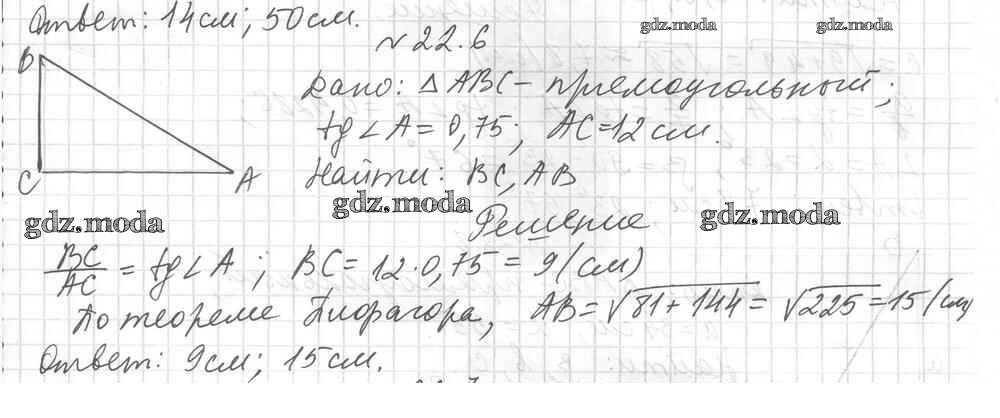 Ответ: 14см; 50см.
gdz.moda gdz.moda
№22.6
B
Дано: △ABC - прямоугольный;
tg∠A = 0,75; AC=12см.
C A
Найти: BC, AB
gdz.moda gdz.moda gdz.moda
Решение
BC/AC = tg∠A; BC = 12·0,75 = 9(см)
По теореме Пифагора, AB = √81+144 = √225 = 15(см)
Ответ: 9см; 15см.